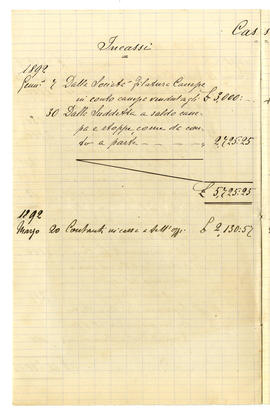 Cas
Incassi
1892
Genn 7 Dalla Società filatura Canape
in conto canape vendutagli £ 3,000.-
30 Dalla Suddetta a saldo cana
pa e stoppe, come da con
to a parte - - - - „ 2,725.25
£ 5,725.25
1892
Marzo 20 Contanti £ 2,130.57